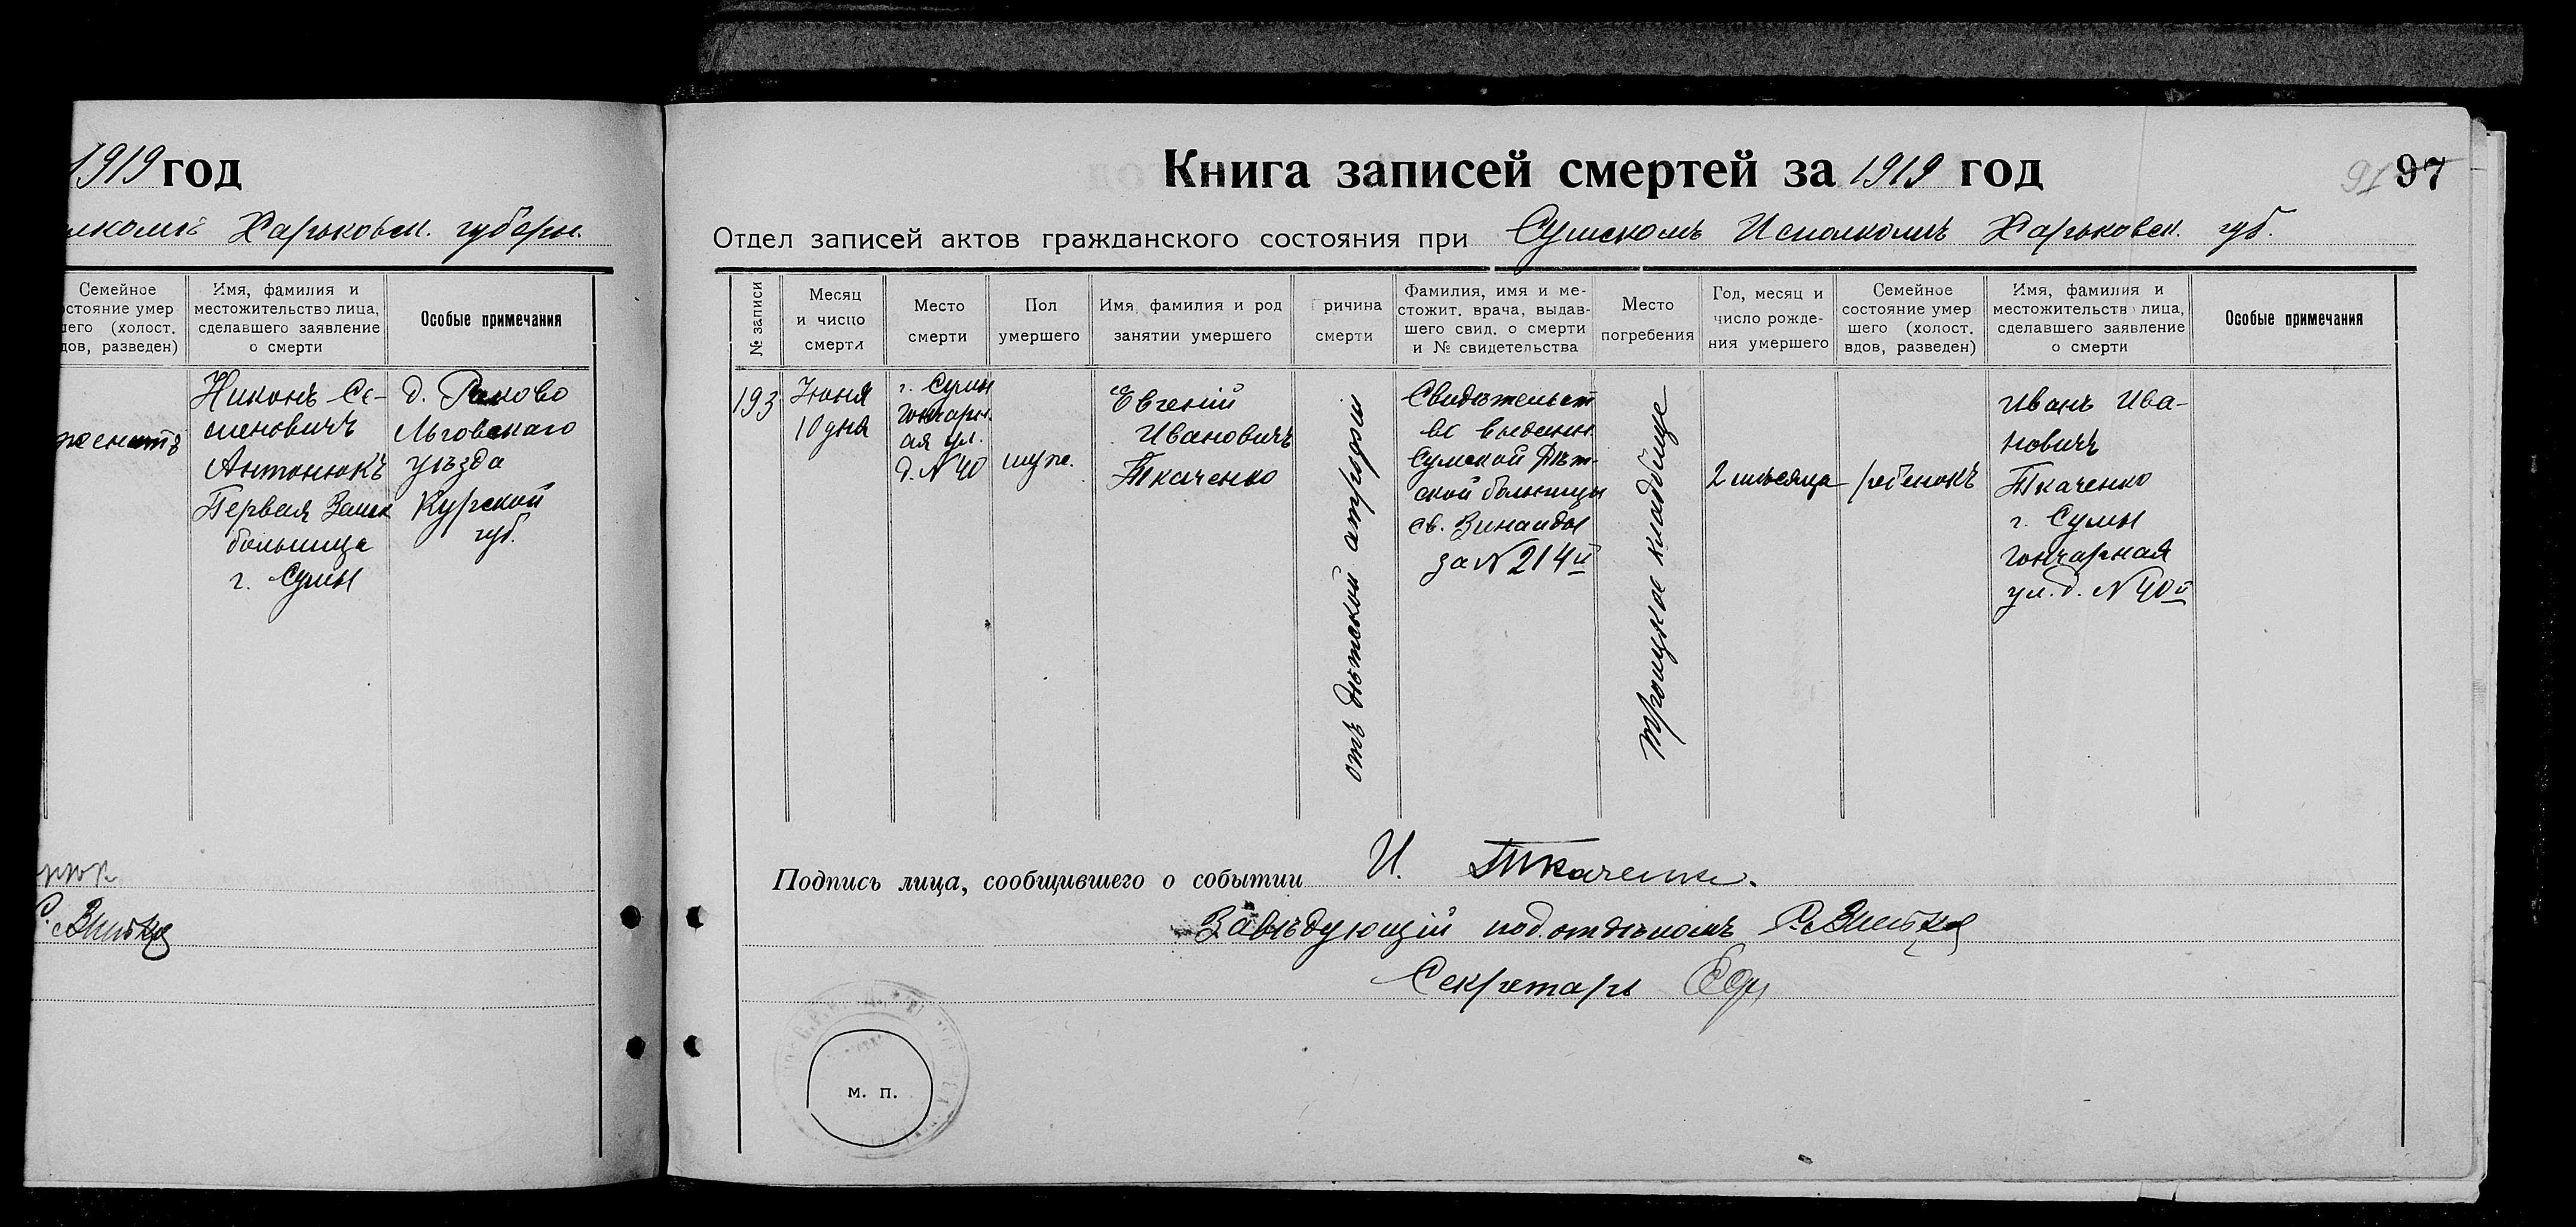 1919 год
Харьковск. губерн.
Семейное
остояние умер
шего (холост.
вдов, разведен)
Имя, фамилия и
местожительство лица,
сделавшего заявление
о смерти
Особые примечания
Никонъ Се-
меновичъ
Антонюкъ
Первая Заразн
больница
г. Сумы
д. Раково
Льговскаго
уѣзда
Курской
губ.
Книга записей смертей за 1919 год
91 97
Отдел записей актов гражданского состояния при Сумскомъ Исполкомъ Харьковск. губ.
№ записи
Месяц
и число
смерти
Место
смерти
Пол
умершего
Имя, фамилия и род
занятии умершего
Причина
смерти
Фамилия, имя и ме-
стожит. врача, выдав-
шего свид. о смерти
и № свидетельства
Место
погребения
Год, месяц и
число рожде-
ния умершего
Семейное
состояние умер
шего (холост.
вдов, разведен)
Имя, фамилия и
местожительство лица,
сделавшего заявление
о смерти
Особые примечания
193
Июня
10 дня
г. Сумы
Гончарн.
ая ул.
д. N 40
муж.
Евгеній
Ивановичъ
Ткаченко
отъ дѣтской атрофіи
Свидѣтельст
во выданн.
Сумской Дѣт-
ской больницы
св. Зинаиды
за N 214й
Троицкое кладбище
2 мѣсяца
ребенокъ
Иванъ Ива-
новичъ
Ткаченко
г. Сумы
Гончарная
ул. д. N 40й
Подпись лица, сообщившего о событии И. Ткаченко.
Завѣдующій подотдѣломъ
Секретарь
м. п.